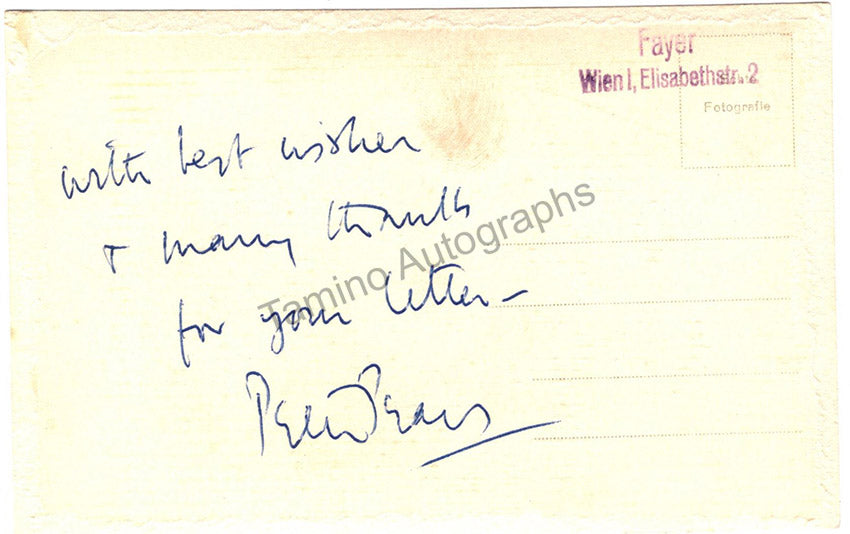 Fayer
Wien I, Elisabethstr. 2
Fotografie
with best wishes
& many thanks
for your letter –
Peter Pears
Tamino Autographs